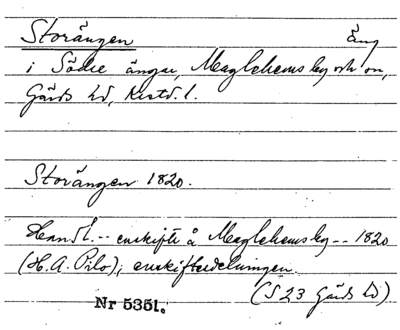 Storängen Äng
i Södre ängar, Maglehems by och sn,
Gärds hd, Kristd. l.
Storängen 1820.
Handl. -- enskifte å Maglehems by -- 1820
(H. A. Pilo); enskiftesdelningen.
(S 23 Gärds hd)
Nr 5351.